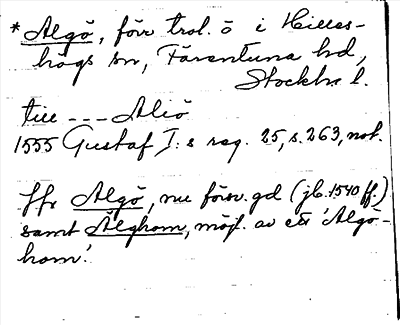 * Algö, förr trol. ö i Hilles-
högs sn, Färentuna hd,
Stockhs l.
till --- Aliö
1555 Gustaf I:s reg. 25, s. 263, not.
Jfr Algö, nu försv. gd (jb. 1540 ff.)
samt Älghom, möjl. av ett 'Algö-
hom'.